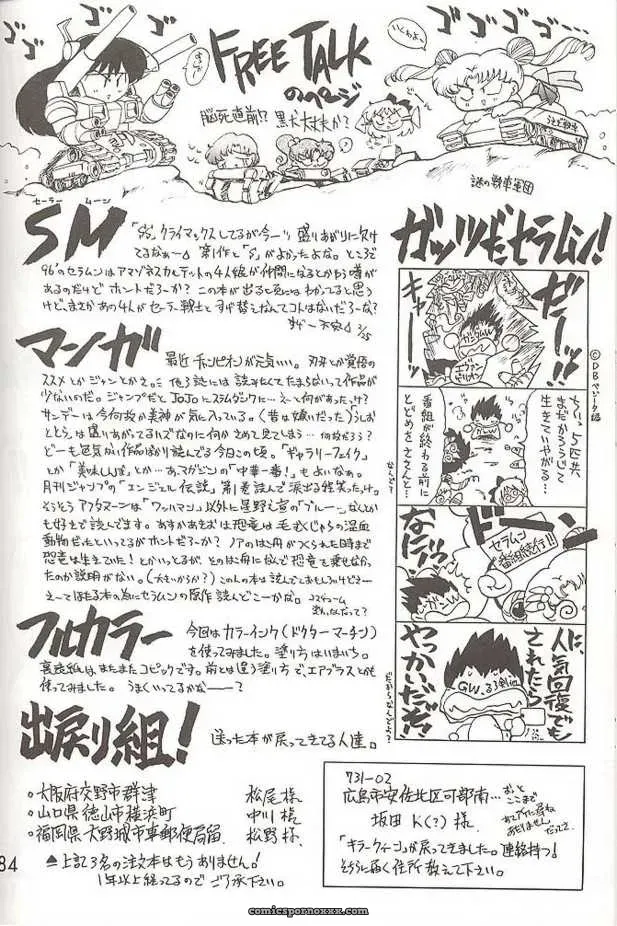 ゴゴゴ
ゴゴゴ…
FREE TALK
のページ
脳死直前!? 黒犬大丈夫か?
謎の戦車軍団
セーラー ムーン
SM
「SS」クライマックスしてるが今一ツ盛りあがりに欠け
てるなぁー。第1作と「S」がよかったよな。ところで
96'のセラムンはアマゾネスカルテットの4人娘が仲間になるとかもう噂が
あるのだけどホントだろーか?この本が出る頃にはわかってると思う
けど、まさかあの4人がセーラー戦士とすげ替えなんてコトはないだろーな?
2/25
マンガ
最近チャンピオンが元気いい。刃牙とか覚悟の
ススメとかジャンとかetc。…他3誌には読みたくてたまらないって作品が
少ないのだ。ジャンプだとJoJoにスラムダンクに…えーと何があったっけ?
サンデーは今何故か美神が気に入っている。(昔は嫌いだった)うしお
ととらは盛りあがってるハズなのに何かさめて見てしまう…何故だろう?
どーも色気がない作品ばかり読んでる今日この頃。「ギャラリーフェイク」
とか「美味しんぼ」とか…あマガジンの「中華一番!」もよいなぁ。
月刊ジャンプの「エンジェル伝説」第1巻読んで涙出る程笑ったっけ。
そうそうアフタヌーンは「ワッハマン」以外に星野之宣の「ブルーシ
も好きで読んでです。
恐竜は生きていた!とかいってるが、そのはこ舟になんで恐竜を乗せなかっ
たのか説明がない。(大きいからか?)
フルカラー
今回はカラーインク(ドクターマーチン)
を使ってみました。塗り方はいまいち。
裏表紙はまたまたコピックです。前とは違う塗り方で、エアブラスとかも
使ってみました。うまくいってるかなーーー?
出戻り組!
送った本が戻ってきてる人達。
○大阪府交野市群津 松尾様
○山口県徳山市横浜町 中川様
○福岡県大野城市東郵便局留 松野様
▲上記3名の注文本はもうありません!
1年以上経ってるのでご了承下さい。
731-02
広島市安佐北区可部南…
坂田K(?)様
「キラークィーン」が戻ってきました。連絡待つ!
そちらに届く住所教えて下さい。
ガッツだセラムン!
©DBベジータ編
だーッ!!
キャー
ガンダムW
エヴァンゲリオン
ちいっ5匹共
まだかろうじて
生きていやがる…
番組が終わる前に
とどめをささんと…
ドーン
セラムン
番組続行!!
なにィッ
人に、人気回復でも
されたら
GW、るろ剣他
やっかいだぜ!
84
comicspornoxxx.com